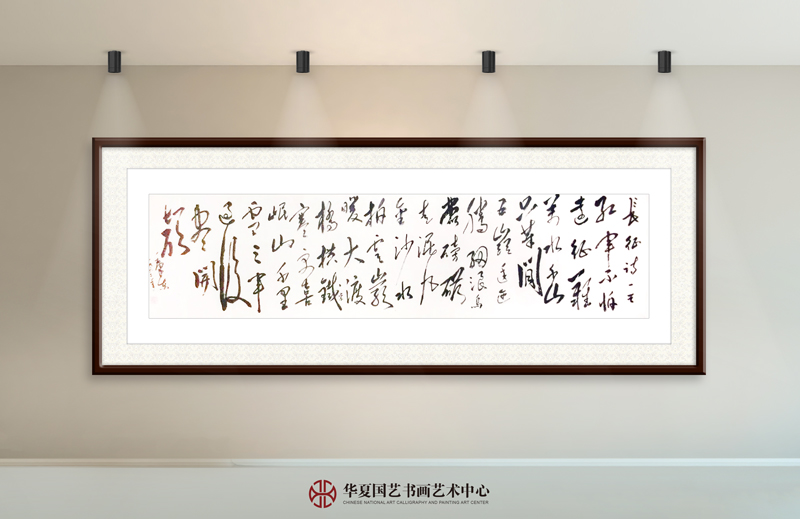 長征詩一首
紅軍不怕
遠征難
萬水千山
只等閒
五嶺逶迤
騰細浪烏
蒙磅礴
走泥丸
金沙水
拍雲崖
暖大渡
橋横鐵
索寒更喜
岷山千里
雪三軍
過後
盡開
顏
华夏国艺书画艺术中心
CHINESE NATIONAL ART CALLIGRAPHY AND PAINTING ART CENTER